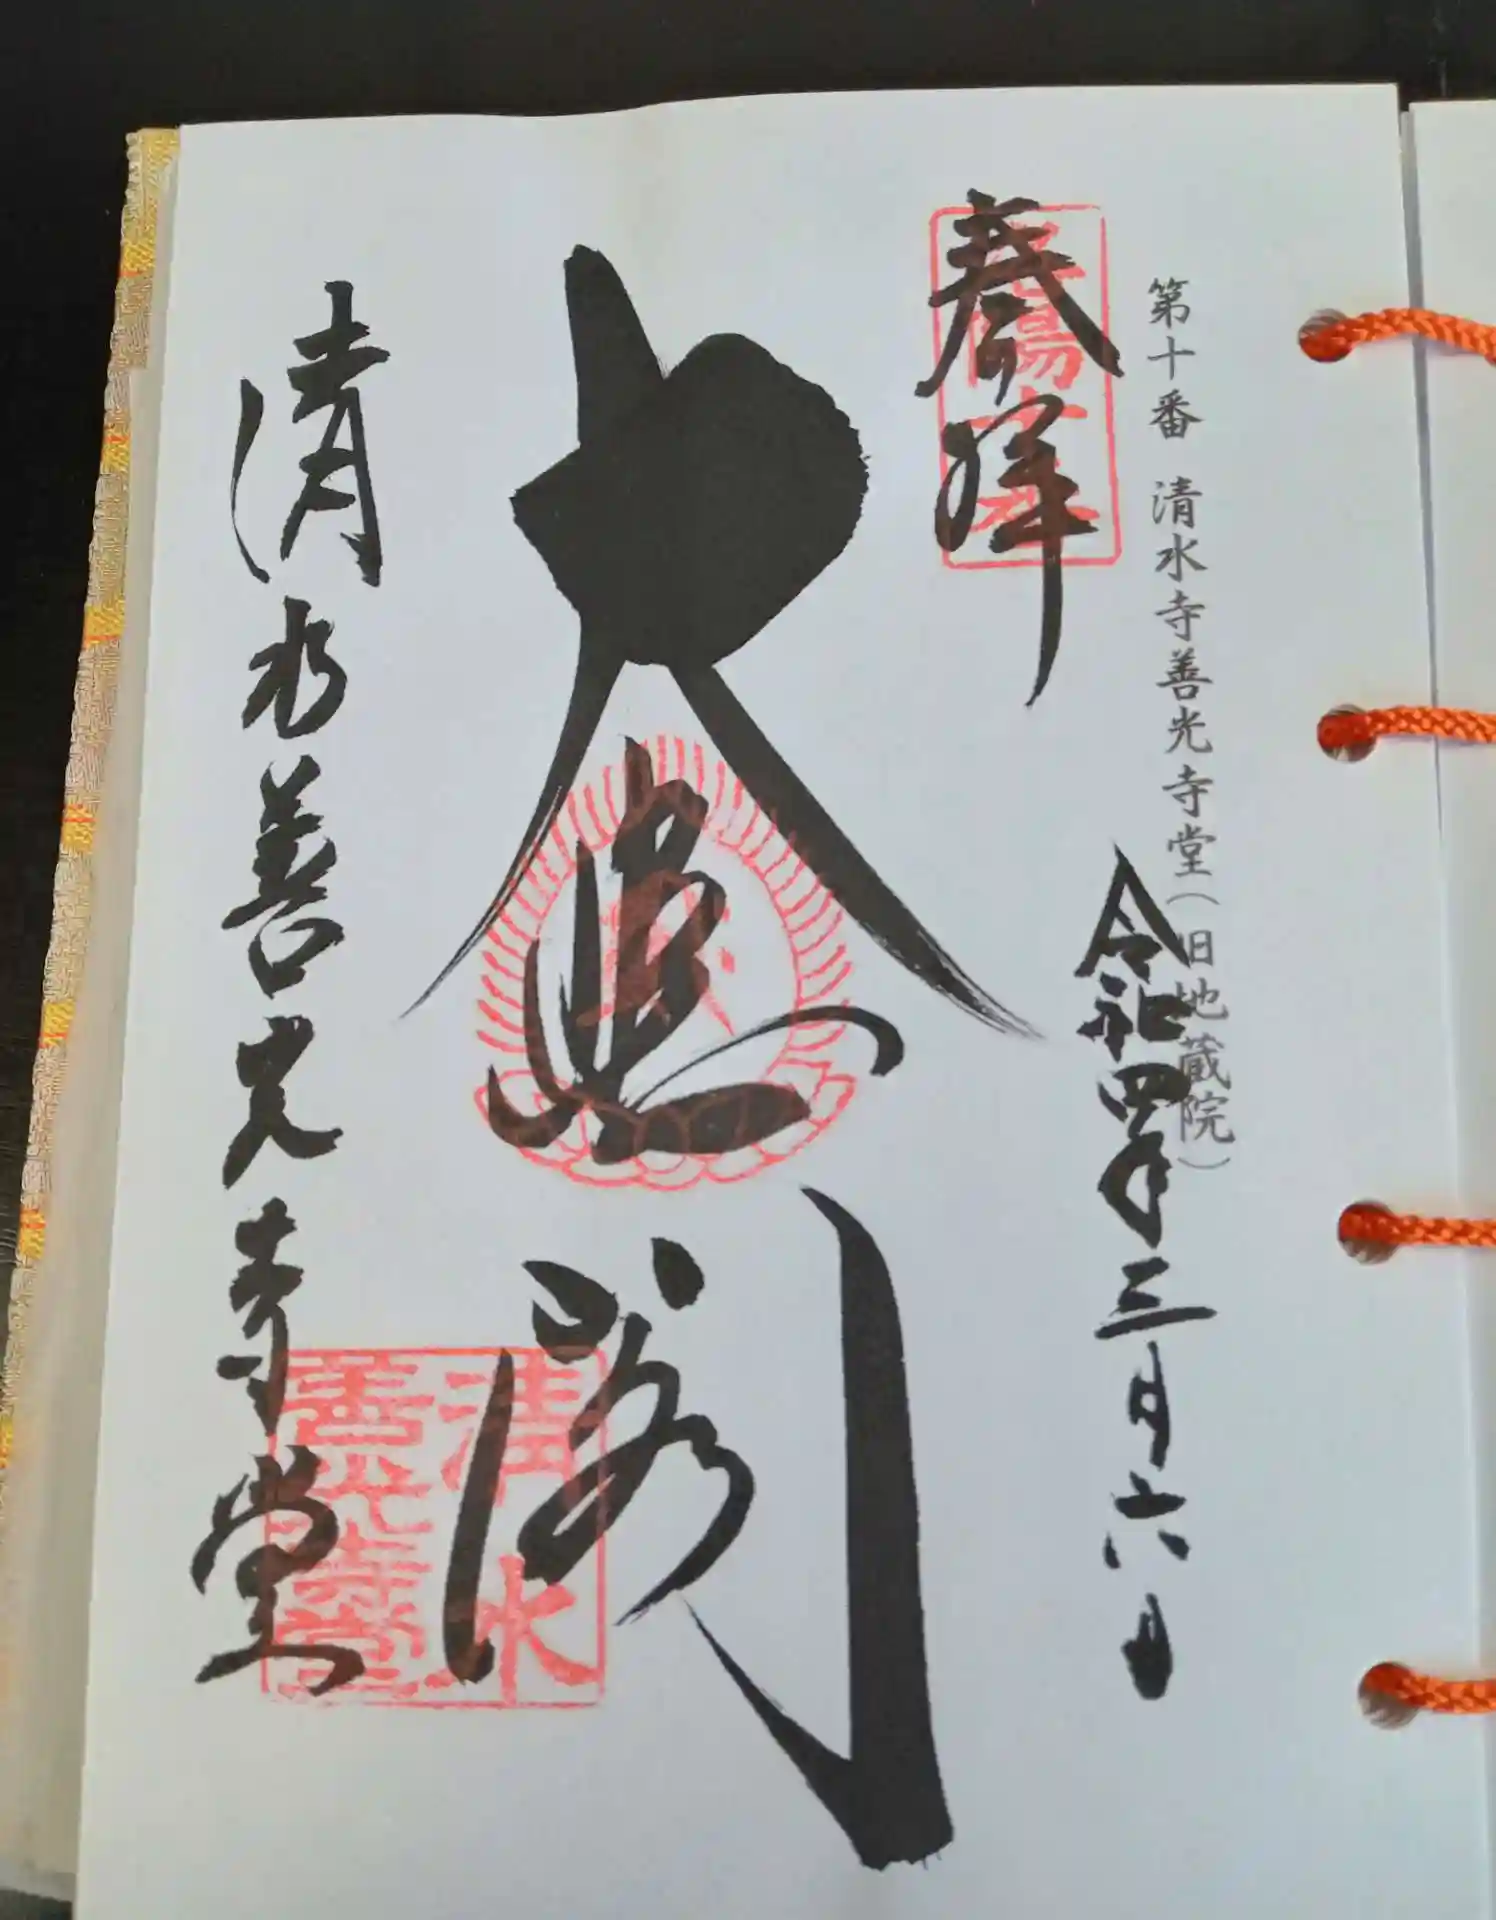 第十番 清水寺善光寺堂（旧地蔵院）
奉拝
令和四年三月六日
大悲閣
清水善光寺堂
清水
善光寺堂